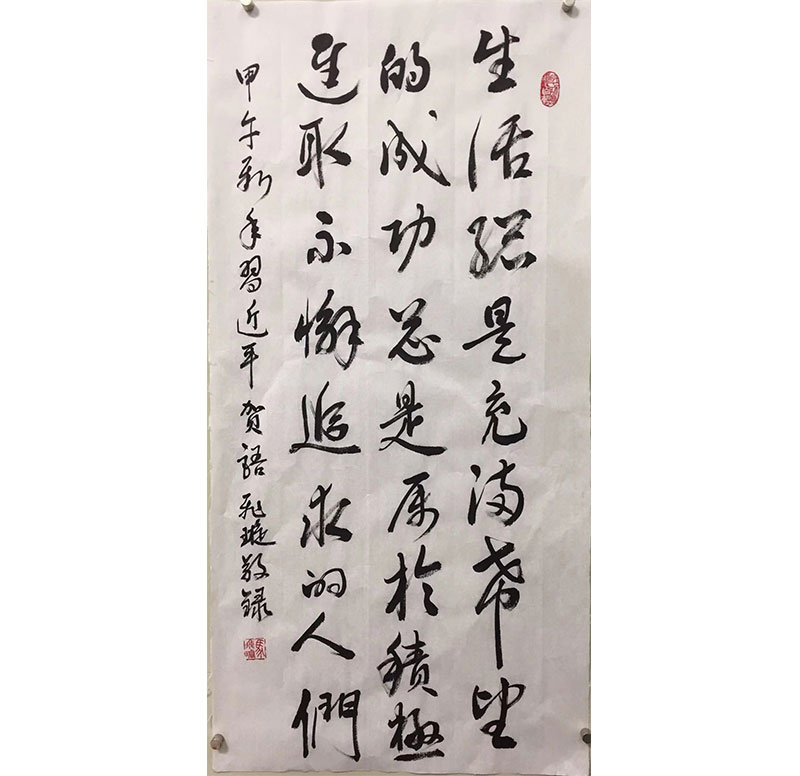 生活總是充满希望
的成功总是属於積極
進取不懈追求的人們
甲午新年習近平賀語飛璇敬録